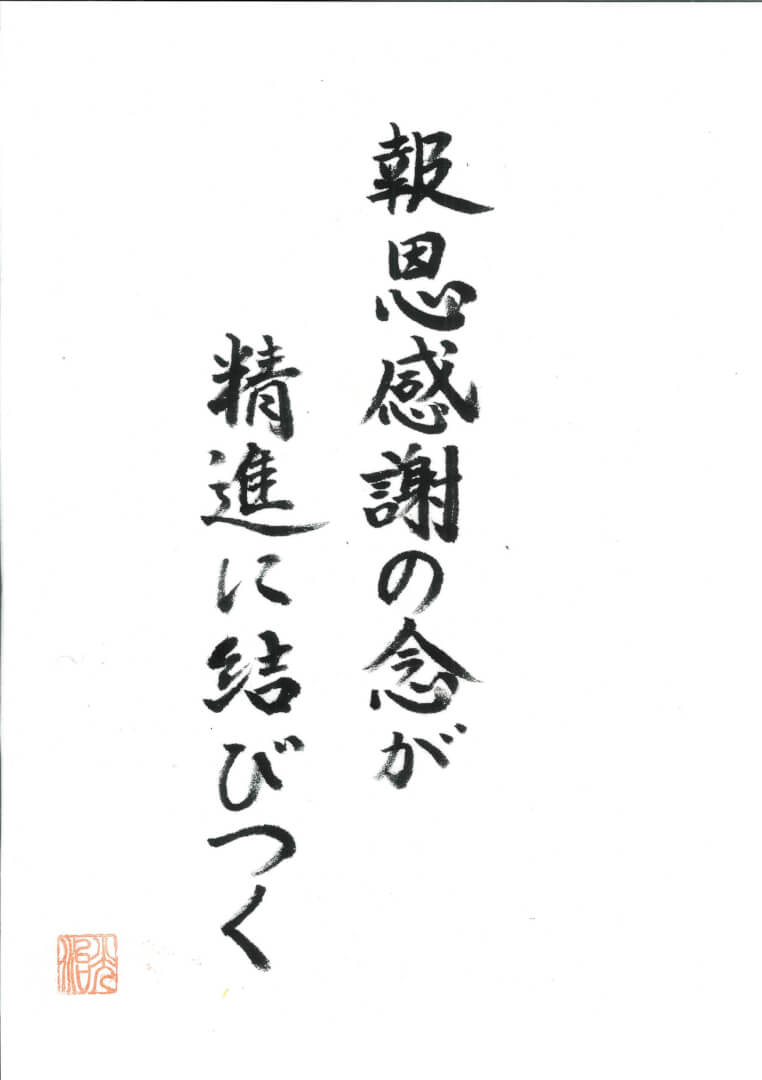 報恩感謝の念が
精進に結びつく